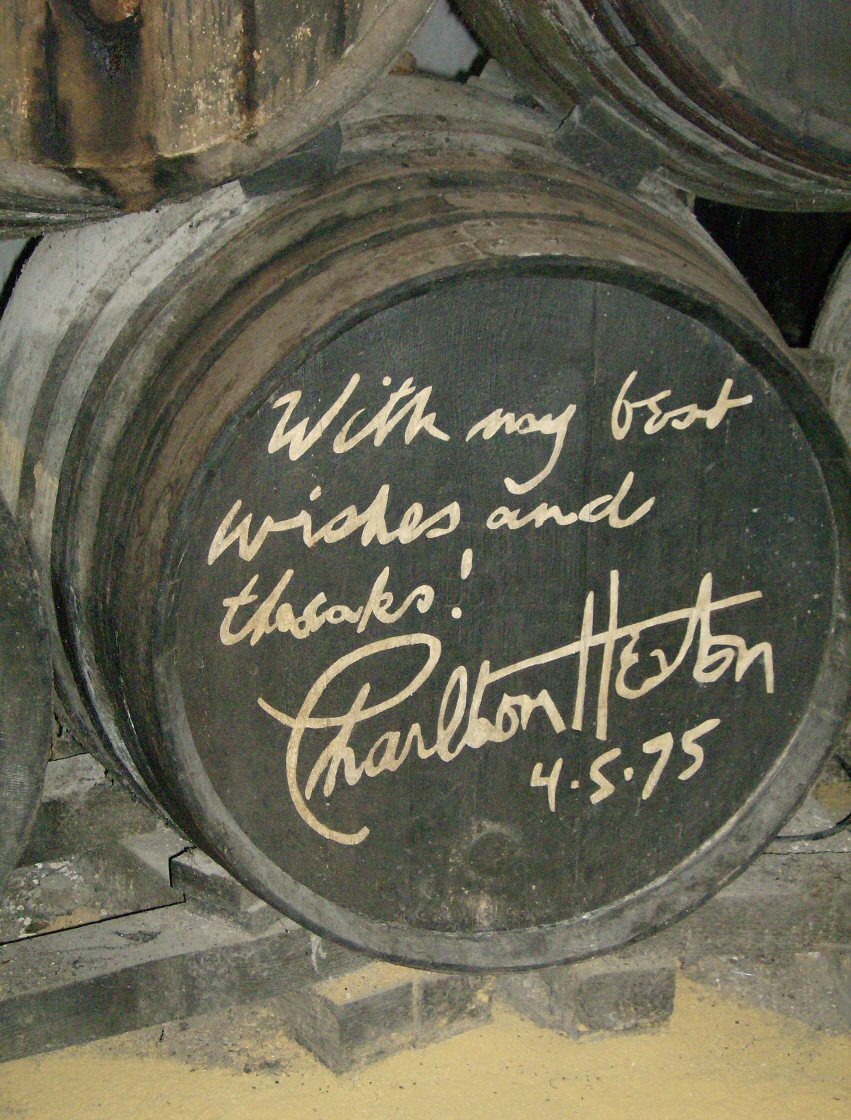 With my best
wishes and
thanks!
Charlton Heston
4.5.75